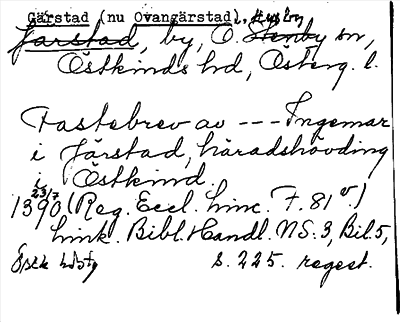 Gärstad (nu Ovangärstad), Husby
Järstad, by, Ö. Stenby sn,
Östkinds hd, Österg. l.
Fastebrev av --- Ingemar
i Järstad, häradshövding
i Östkind.
23/7
1390 (Reg. Eccl. Linc. F. 81 v.)
Link. Bibl. Handl. NS: 3, Bil. 5,
s. 225. regest.